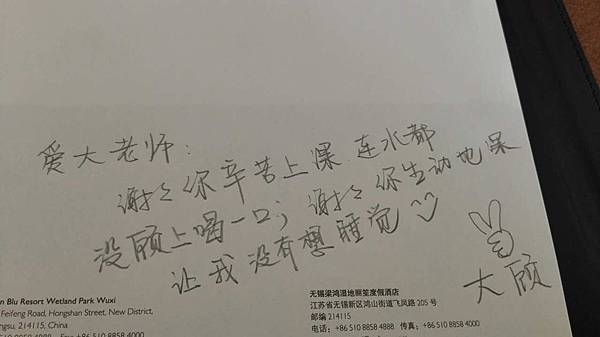 爱大老师：
谢谢你辛苦上课 连水都
没顾上喝一口；谢谢你生动地课
让我没有想睡觉
大顾
n Blu Resort Wetland Park Wuxi
Feifeng Road, Hongshan Street, New District,
ngsu, 214115, China
+86 510 8858 4000
无锡梁鸿湿地丽笙度假酒店
江苏省无锡新区鸿山街道飞凤路 205 号
邮编 214115
电话：+86 510 8858 4888 传真：+86 510 8858 4000